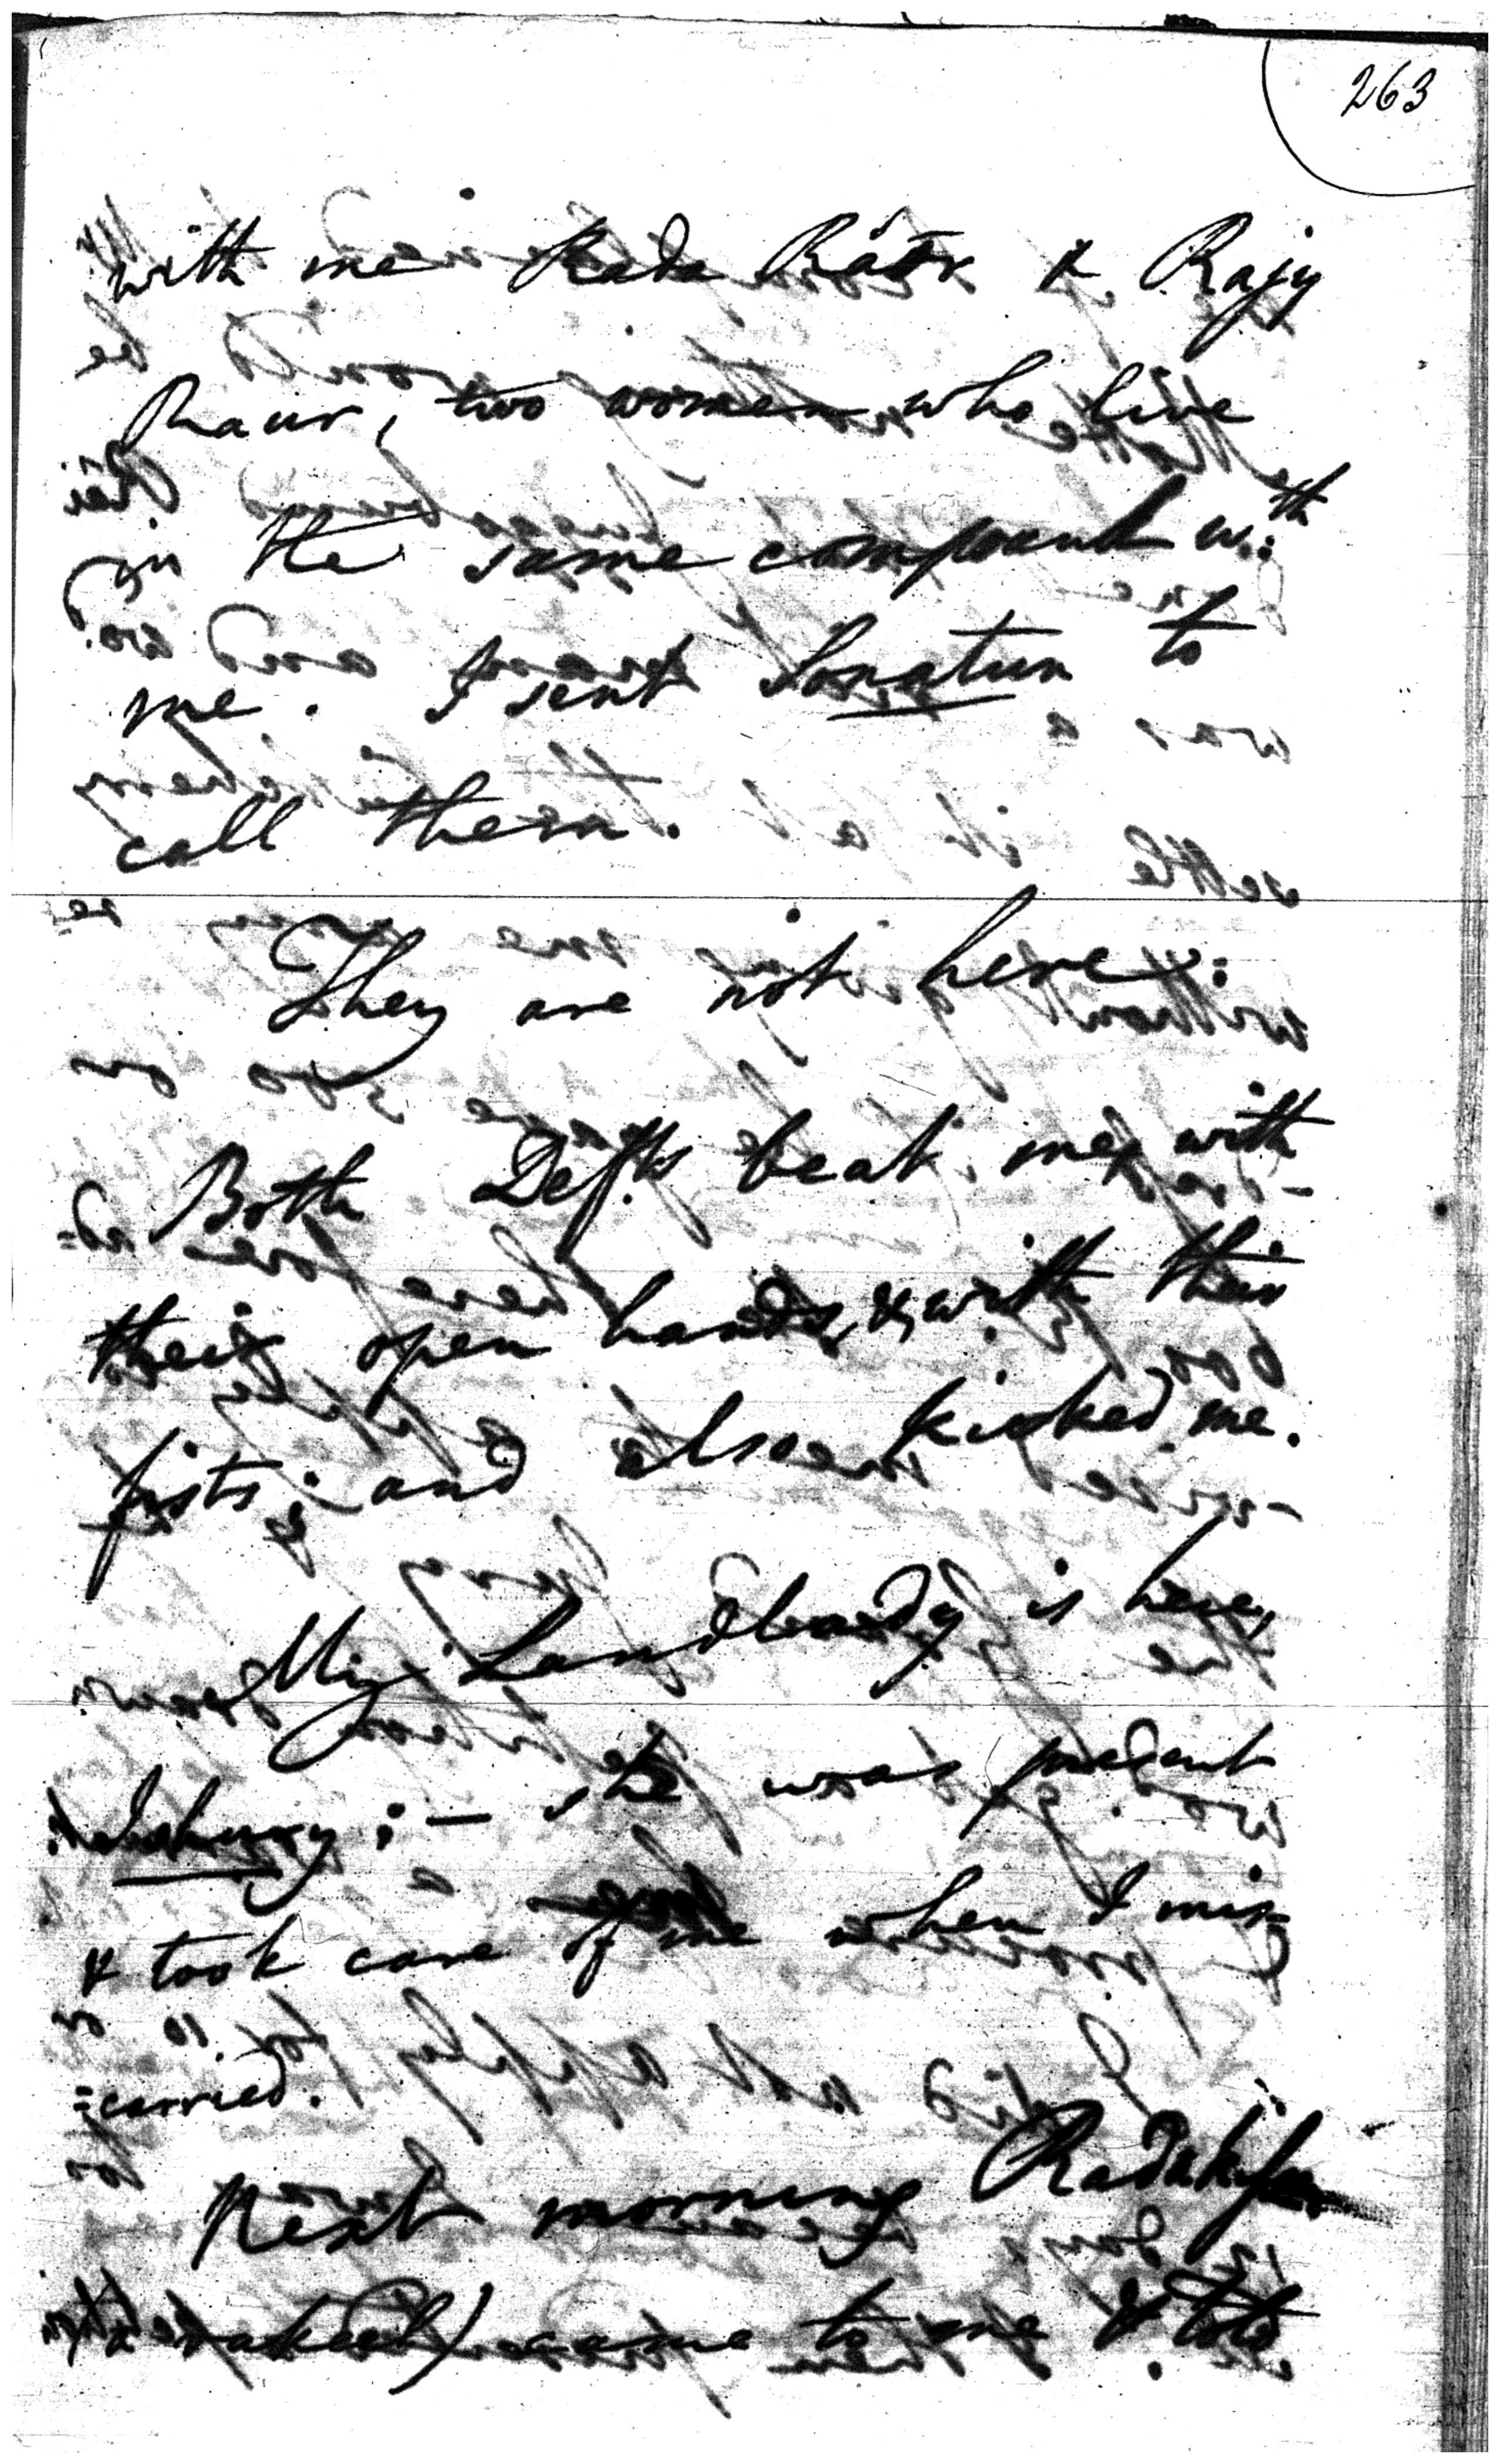 263
with me Rada Räur & Rajy
Raur, two women who live
in the same compound wth
me. I sent Sonatun to
call them.
They are not here:
Both Defts beat me with
their open hands, & with their
fists; and also kicked me.
My Landlady is here,
; — she was present
& took care of me when I mis=
=carried.
Next morning
(a vakeel) came to me & told